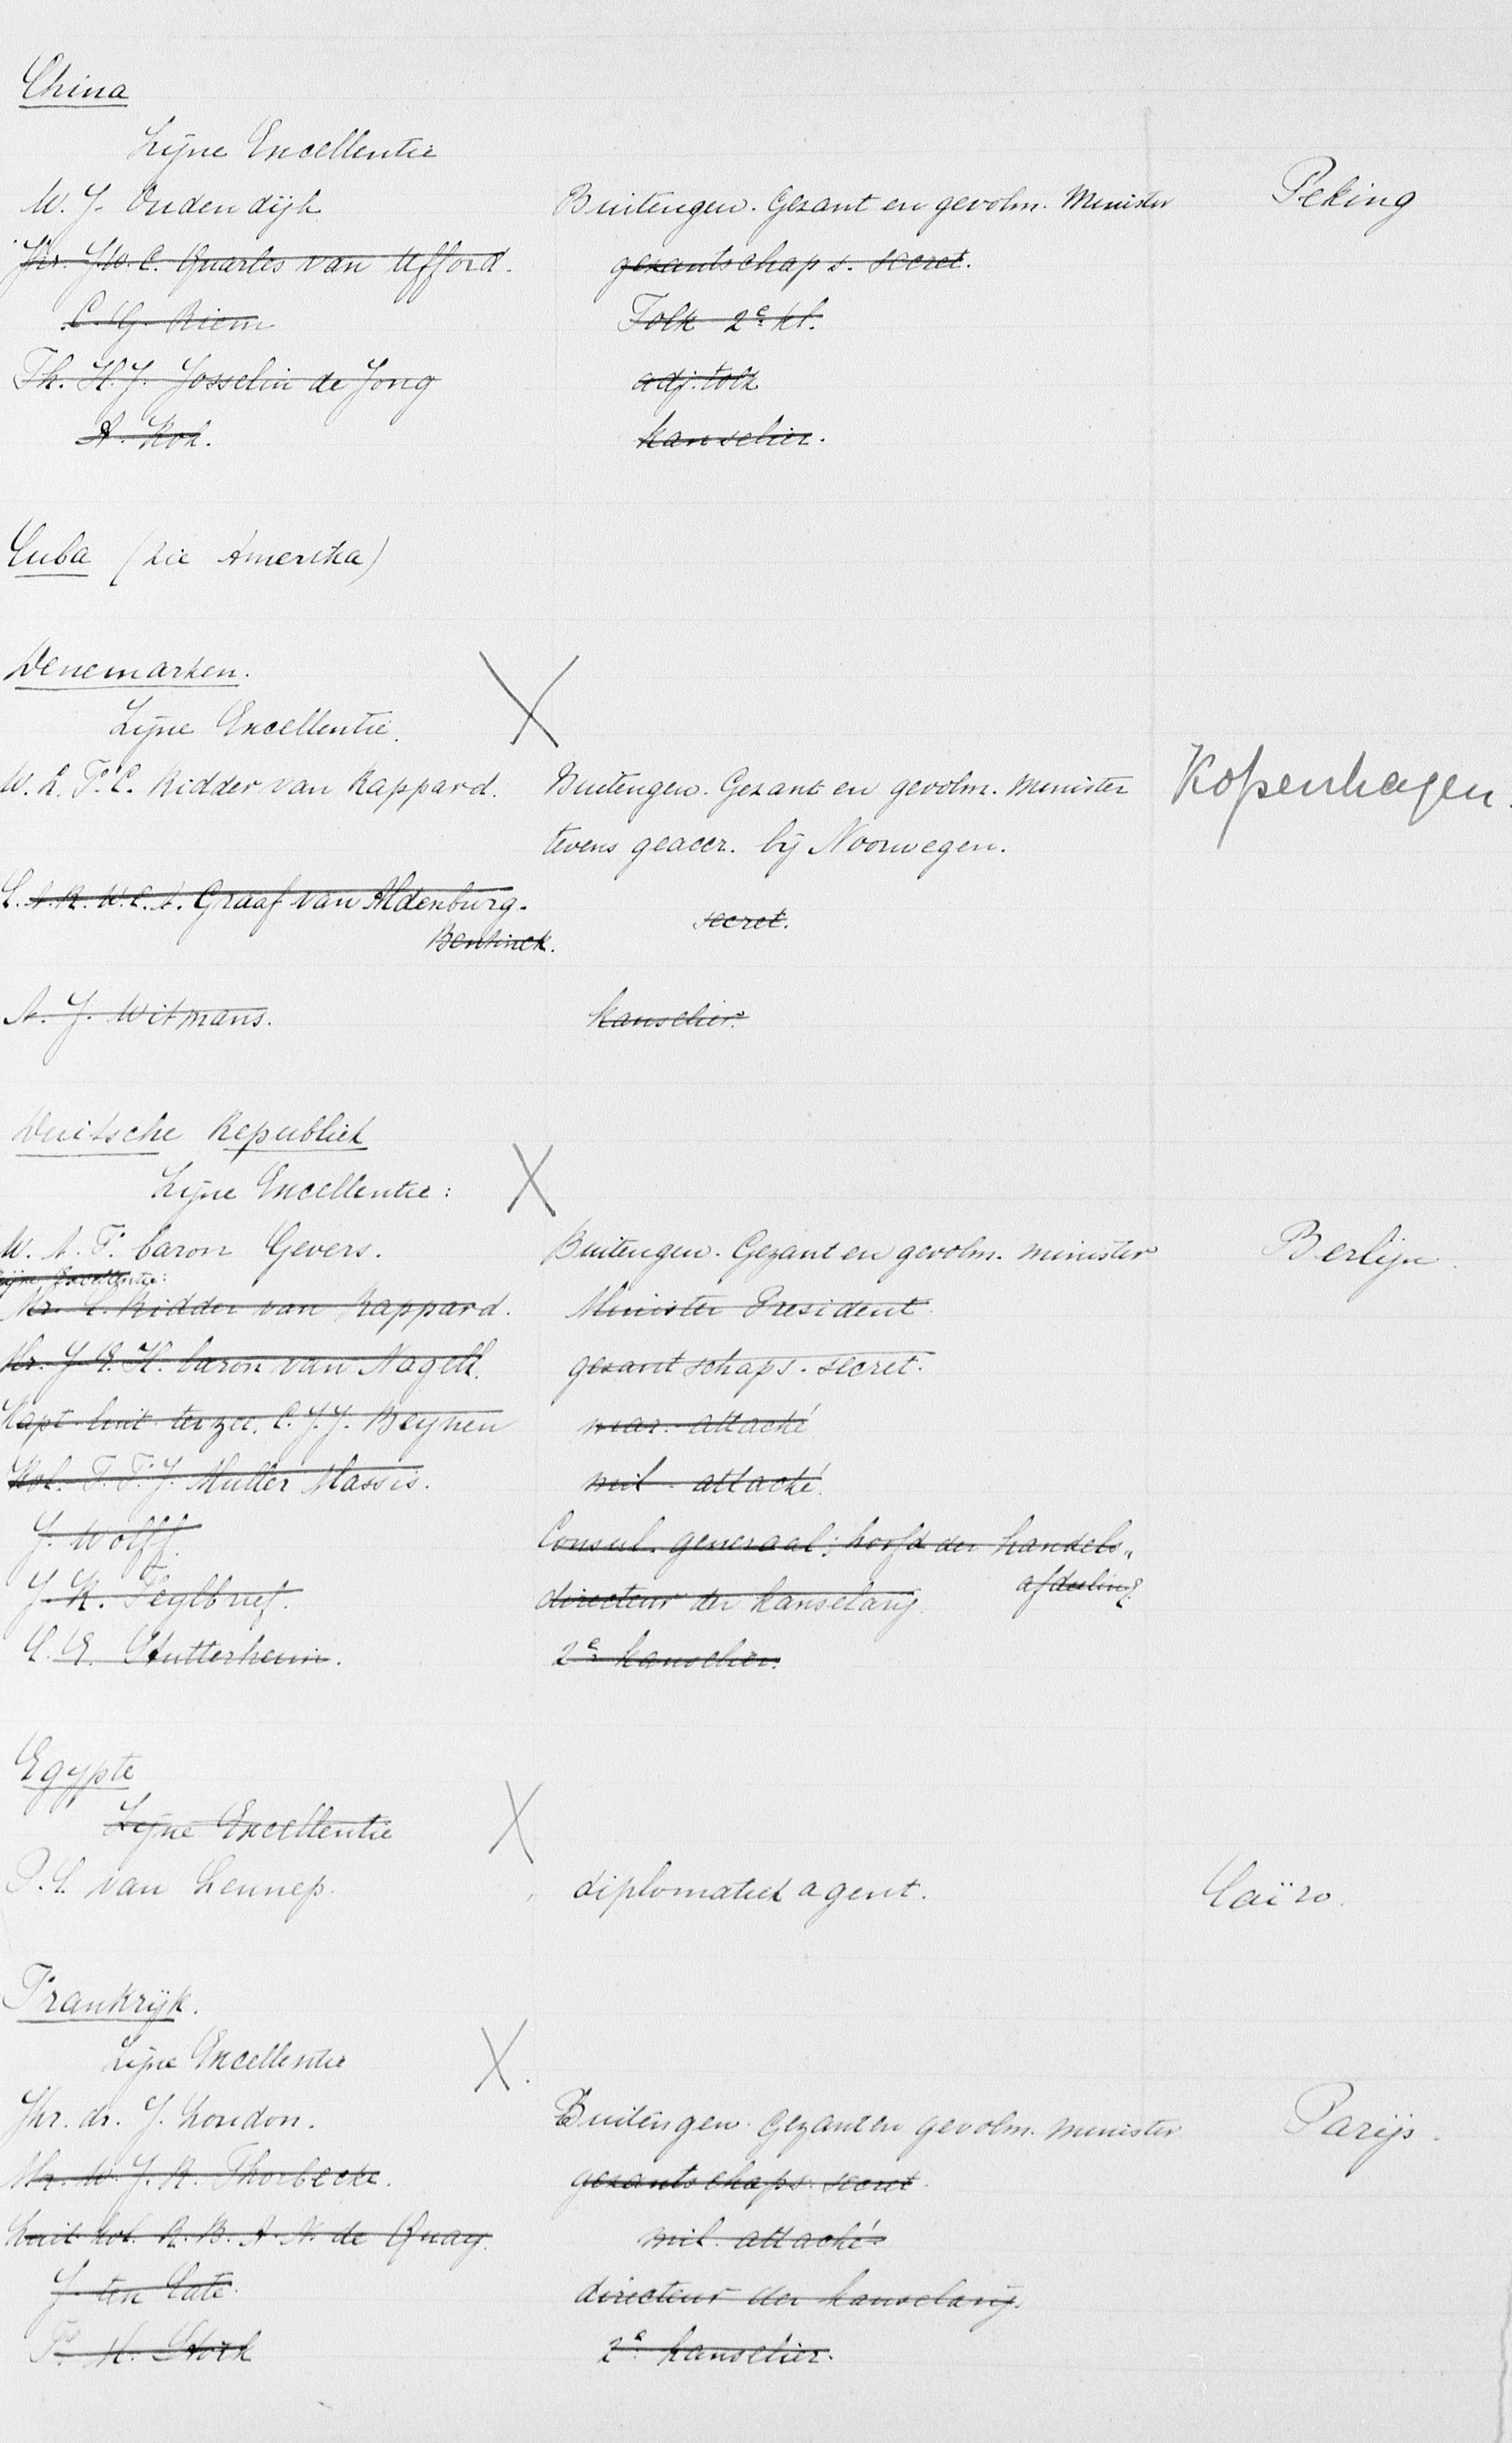 China
Zijne Excellentie
W. J. Oudendijk Buitengew. Gezant en gevolm. Minister Peking
Jhr. J.W.C. Quarles van Ufford. gezantschaps. secret.
C. G. Riem Tolk 2e kl.
Th. H. J. Josselin de Jong adj. tolk
A. Kok. kanselier.
Cuba (zie Amerika)
Denemarken.
Zijne Excellentie.
W. L. F. C. Ridder van Rappard. Buitengew. Gezant en gevolm. Minister Kopenhagen.
tevens geaccr. bij Noorwegen.
C. A. R. W. C. A. Graaf van Aldenburg. secret.
Bentinck.
A. J. Witmans. kanselier.
Duitsche Republiek
Zijne Excellentie:
W. A. F. baron Gevers. Buitengew. Gezant en gevolm. minister Berlijn.
Zijne Excellentie:
Mr. C. Ridder van Rappard. Minister President.
Mr. J. E. H. baron van Nagell. gezantschaps. secret.
Kapt. luit. ter zee. C. J. J. Beynen mar. attaché
Kol. F. F. J. Muller Massis. mil. attaché.
J. Wolff. Consul. generaal; hoofd der handels„
afdeeling.
J. K. Teylbrief. directeur der kanselarij.
C. E. Stutterheim. 2e kanselier.
Egypte
Zijne Excellentie
P. C. van Lennep. diplomatiek agent. Caïro.
Frankrijk.
Zijne Excellentie
Jhr. dr. J. Loudon. Buitengew. Gezant en gevolm. minister Parijs.
Mr. W. J. R. Thorbecke. gezantschaps. secret.
Luit. kol. R. B. A. N. de Quay. mil. attaché
J. ten Cate. directeur der kanselarij.
F. M. Stork 2e kanselier.